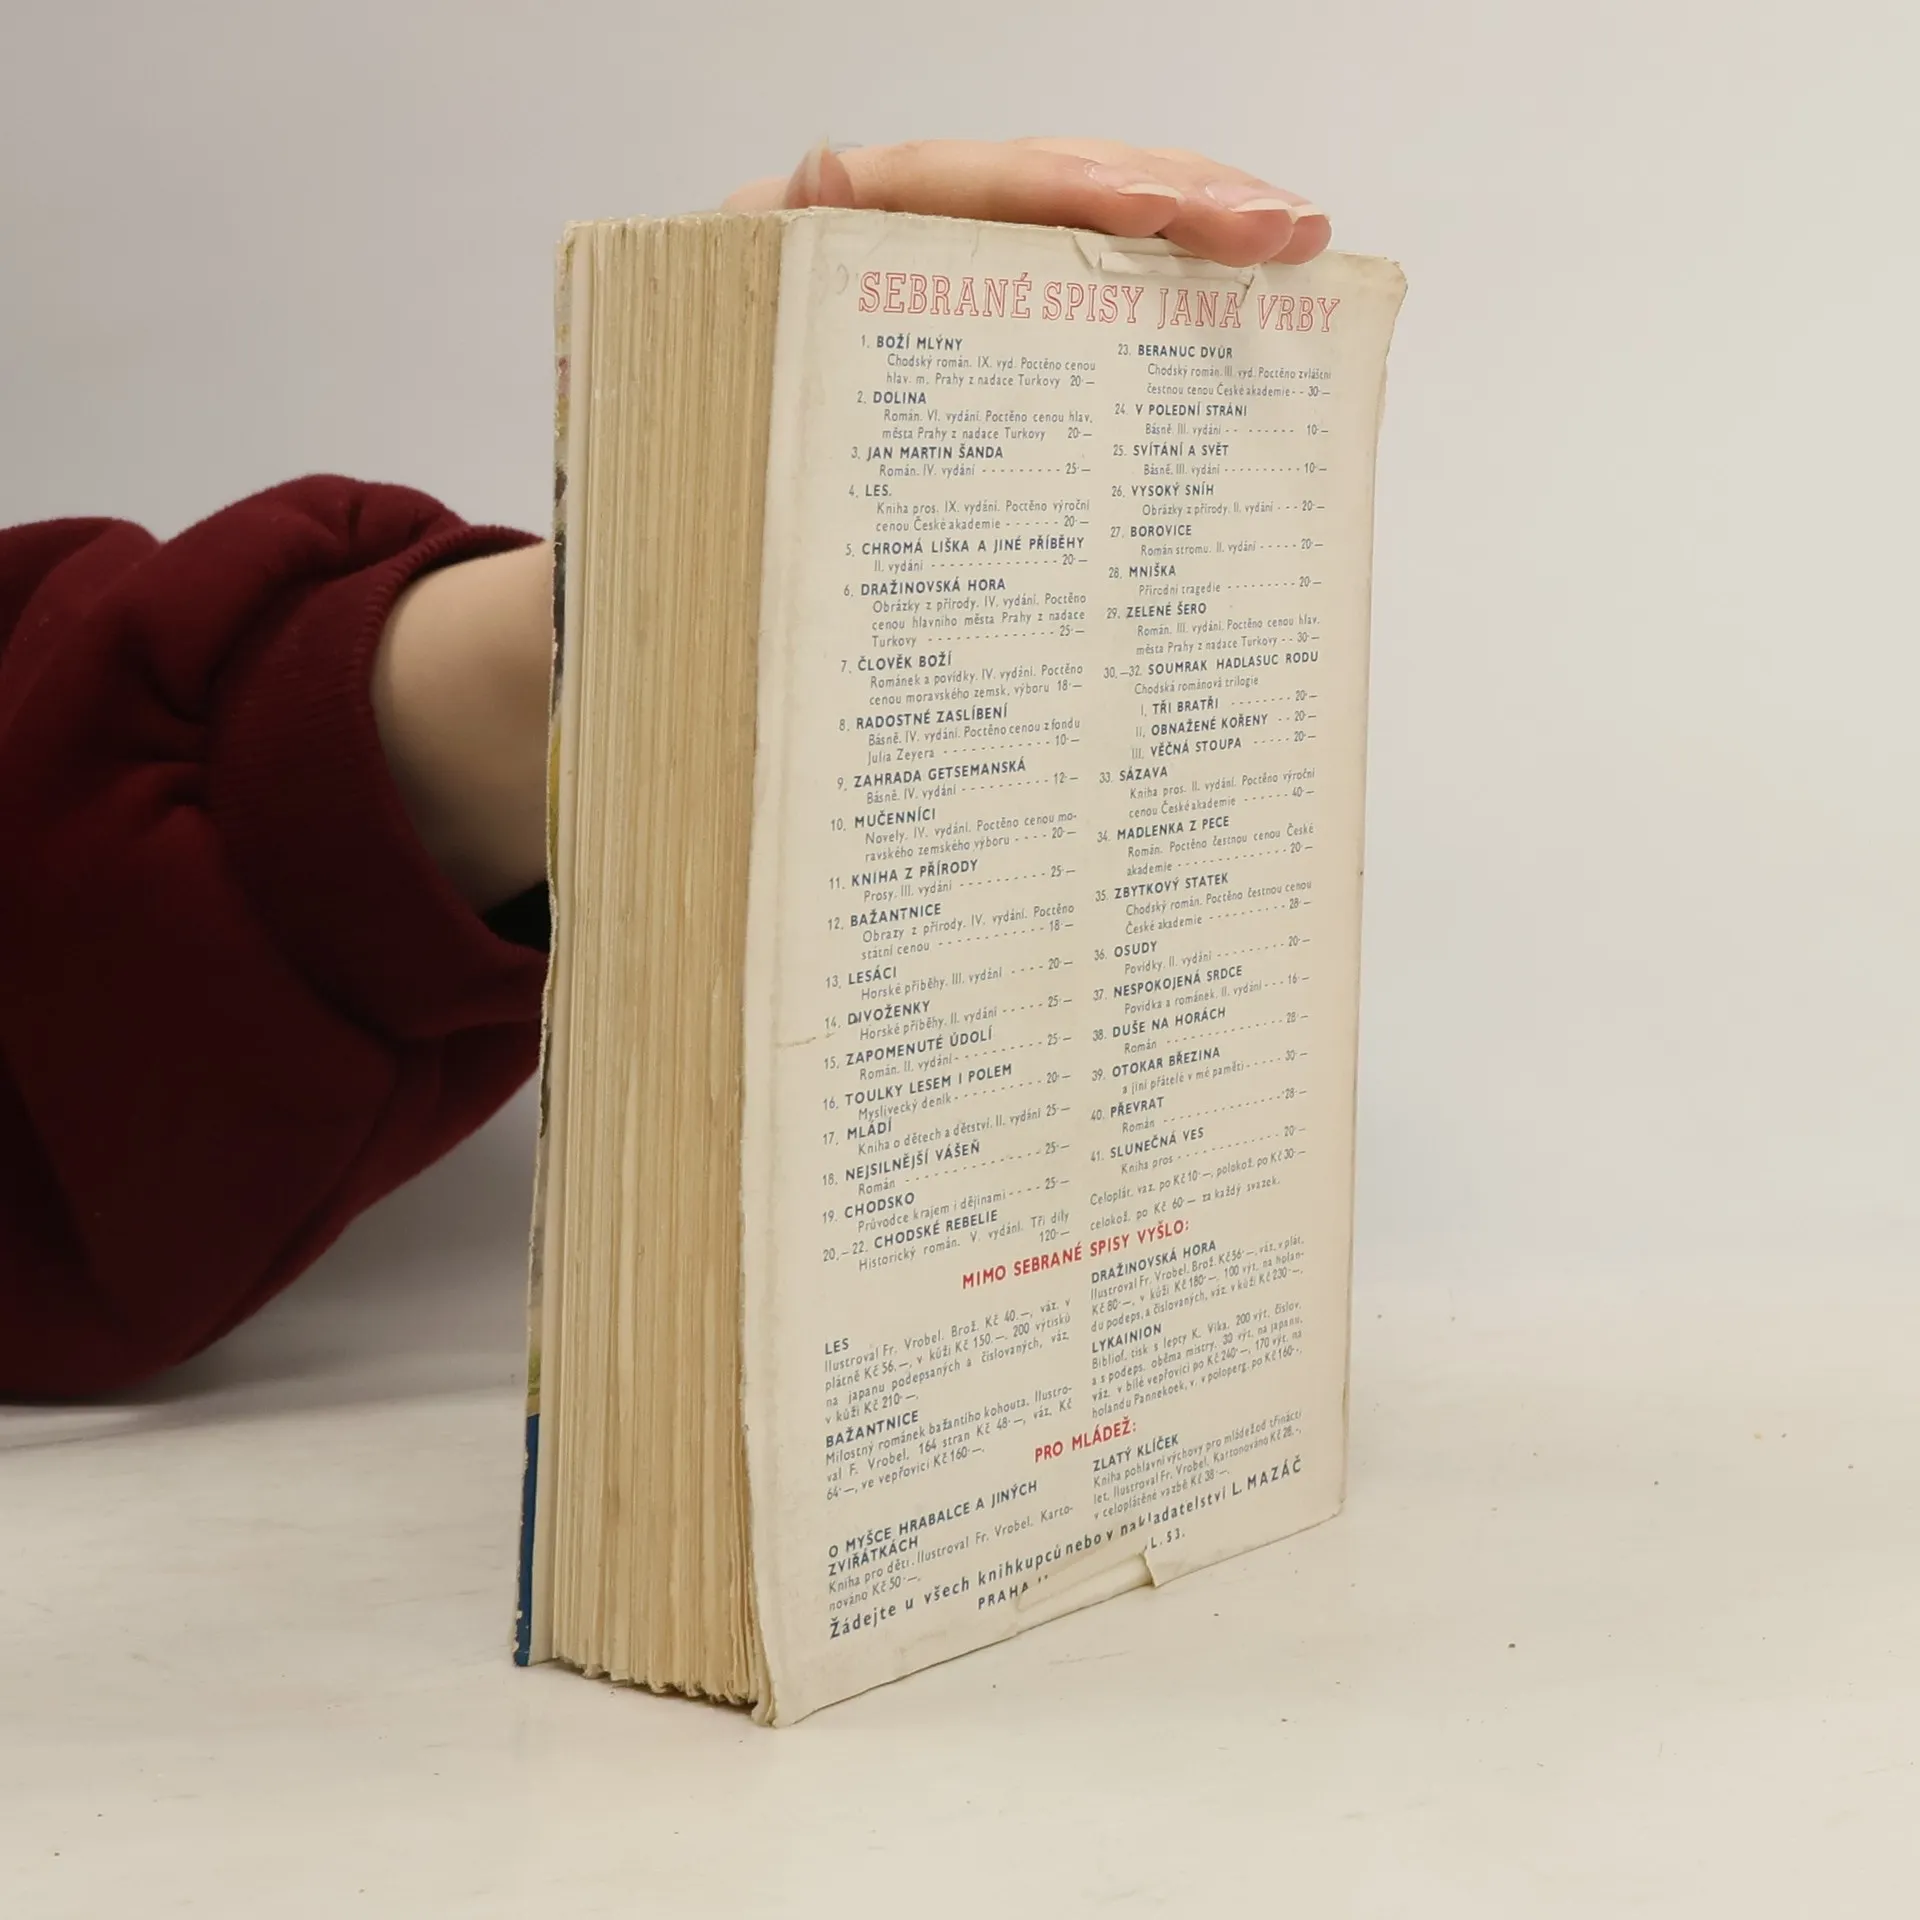 SEBRANÉ SPISY JANA VRBY
1. BOŽÍ MLÝNY
Chodský román. IX. vyd. Poctěno cenou
hlav. m. Prahy z nadace Turkovy 20·—
2. DOLINA
Román. VI. vydání. Poctěno cenou hlav.
města Prahy z nadace Turkovy 20·—
3. JAN MARTIN ŠANDA
Román. IV. vydání - - - - - - - - - 25·—
4. LES.
Kniha pros. IX. vydání. Poctěno výroční
cenou České akademie - - - - - - 20·—
5. CHROMÁ LIŠKA A JINÉ PŘÍBĚHY
II. vydání - - - - - - - - - - - - - - 20·—
6. DRAŽINOVSKÁ HORA
Obrázky z přírody. IV. vydání. Poctěno
cenou hlavního města Prahy z nadace
Turkovy - - - - - - - - - - - - - - 25·—
7. ČLOVĚK BOŽÍ
Románek a povídky. IV. vydání. Poctěno
cenou moravského zemsk. výboru 18·—
8. RADOSTNÉ ZASLÍBENÍ
Básně. IV. vydání. Poctěno cenou z fondu
Julia Zeyera - - - - - - - - - - - - 10·—
9. ZAHRADA GETSEMANSKÁ
Básně. IV. vydání - - - - - - - - - - 12·—
10. MUČENNÍCI
Novely. IV. vydání. Poctěno cenou mo-
ravského zemského výboru - - - - 20·—
11. KNIHA Z PŘÍRODY
Prosy. III. vydání - - - - - - - - - - 25·—
12. BAŽANTNICE
Obrazy z přírody. IV. vydání. Poctěno
státní cenou - - - - - - - - - - - - 18·—
13. LESÁCI
Horské příběhy. III. vydání - - - - 20·—
14. DIVOŽENKY
Horské příběhy. II. vydání - - - - - 25·—
15. ZAPOMENUTÉ ÚDOLÍ
Román. II. vydání - - - - - - - - - - 25·—
16. TOULKY LESEM I POLEM
Myslivecký deník - - - - - - - - - - 20·—
17. MLÁDÍ
Kniha o dětech a dětství. II. vydání 25·—
18. NEJSILNĚJŠÍ VÁŠEŇ
Román - - - - - - - - - - - - - - - 25·—
19. CHODSKO
Průvodce krajem i dějinami - - - - 25·—
20.—22. CHODSKÉ REBELIE
Historický román. V. vydání. Tři díly
120·—
23. BERANUC DVŮR
Chodský román. III. vyd. Poctěno zvláštní
čestnou cenou České akademie - - 30·—
24. V POLEDNÍ STRÁNI
Básně. III. vydání - - - - - - - - 10·—
25. SVÍTÁNÍ A SVĚT
Básně. III. vydání - - - - - - - - - - 10·—
26. VYSOKÝ SNÍH
Obrázky z přírody. II. vydání - - - 20·—
27. BOROVICE
Román stromu. II. vydání - - - - - 20·—
28. MNIŠKA
Přírodní tragedie - - - - - - - - - - 20·—
29. ZELENÉ ŠERO
Román. III. vydání. Poctěno cenou hlav.
města Prahy z nadace Turkovy - - 30·—
30.—32. SOUMRAK HADLASUC RODU
Chodská románová trilogie
I. TŘI BRATŘI - - - - - - - - 20·—
II. OBNAŽENÉ KOŘENY - - 20·—
III. VĚČNÁ STOUPA - - - - - 20·—
33. SÁZAVA
Kniha pros. II. vydání. Poctěno výroční
cenou České akademie - - - - - - 40·—
34. MADLENKA Z PECE
Román. Poctěno čestnou cenou České
akademie - - - - - - - - - - - - - - 20·—
35. ZBYTKOVÝ STATEK
Chodský román. Poctěno čestnou cenou
České akademie - - - - - - - - - - 28·—
36. OSUDY
Povídky. II. vydání - - - - - - - - - 20·—
37. NESPOKOJENÁ SRDCE
Povídka a románek. II. vydání - - - 16·—
38. DUŠE NA HORÁCH
Román - - - - - - - - - - - - - - - 28·—
39. OTOKAR BŘEZINA
a jiní přátelé v mé paměti - - - - - 30·—
40. PŘEVRAT
Román - - - - - - - - - - - - - - - 28·—
41. SLUNEČNÁ VES
Kniha pros - - - - - - - - - - - - - 20·—
Celoplát. váz. po Kč 10·—, polokož. po Kč 30·—
celokož. po Kč 60·— za každý svazek.
MIMO SEBRANÉ SPISY VYŠLO:
LES
Ilustroval Fr. Vrobel. Brož. Kč 40.—, váz. v
plátně Kč 56.—, v kůži Kč 150.—, 200 výtisků
na japanu podepsaných a číslovaných, váz.
v kůži Kč 210·—.
BAŽANTNICE
Milostný románek bažantího kohouta. Ilustro-
val F. Vrobel. 164 stran Kč 48·—, váz. Kč
64·—, ve vepřovici Kč 160·—.
DRAŽINOVSKÁ HORA
Ilustroval Fr. Vrobel. Brož. Kč 56·—, váz. v plát.
Kč 80·—, v kůži Kč 180·—, 100 výt. na holan-
du podeps. a číslovaných, váz. v kůži Kč 230·—.
LYKAINION
Bibliof. tisk s lepty K. Vika. 200 výt. číslov.
a s podeps. oběma mistry. 30 výt. na japanu,
váz. v bílé vepřovici po Kč 240·—, 170 výt. na
holandu Pannekoek, v. v poloperg. po Kč 160·-.
PRO MLÁDEŽ:
O MYŠCE HRABALCE A JINÝCH
ZVÍŘÁTKÁCH
Kniha pro děti. Ilustroval Fr. Vrobel. Karto-
nováno Kč 50·—.
ZLATÝ KLÍČEK
Kniha pohlavní výchovy pro mládež od třinácti
let. Ilustroval Fr. Vrobel. Kartonováno Kč 28.-,
v celoplátěné vazbě Kč 38·—.
Žádejte u všech knihkupců nebo v nakladatelství L. MAZÁČ
PRAHA L. 53.